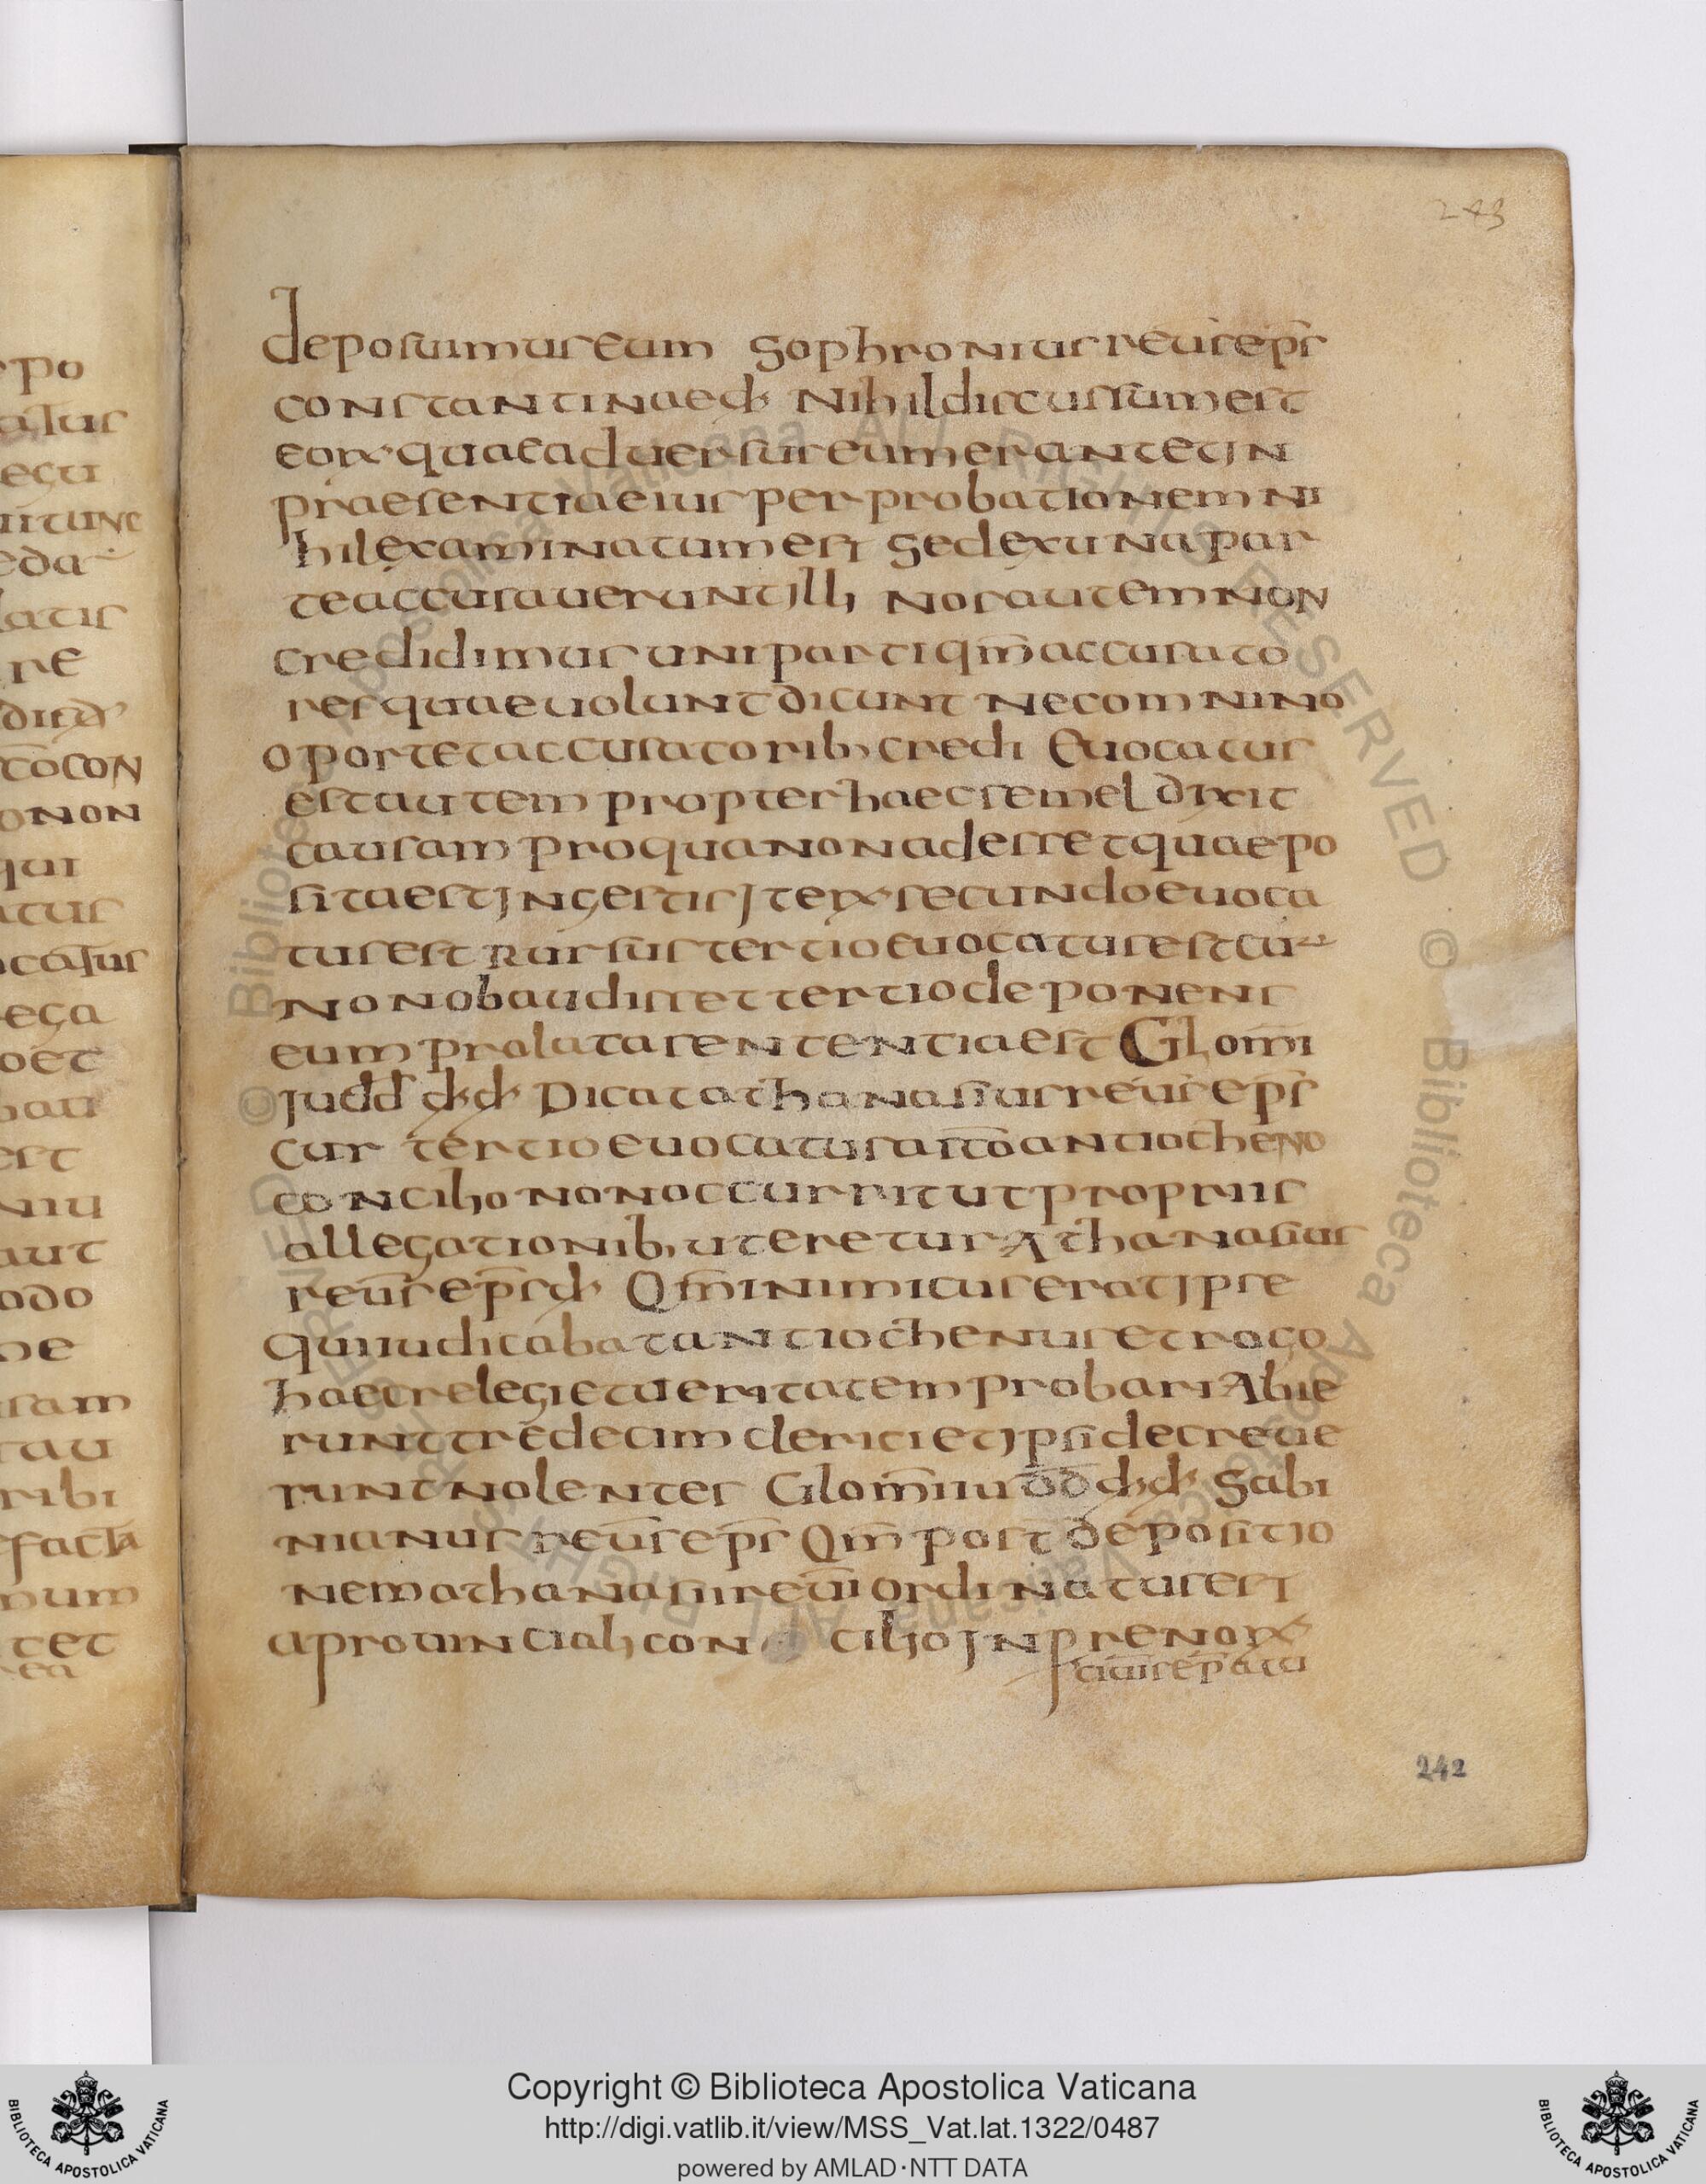 243
deposuimus eum Sophronius reu̅s ep̅s
constantinae d̅x̅ Nihil discussum est
eorum quae aduersus eum erant et in
praesentia eius per probationem ni
hil examinatum est Sed ex una par
te accusauerunt illi Nos autem non
credidimus uni parti qm̅ accusato
res quae uolunt dicunt Nec omnino
oportet accusatorib; credi Euocatus
est autem propter haec semel dixit
causam pro qua non adesset quae po
sita est in gestis Iterum secundo euoca
tus est Rursus tertio euocatus est cu̅
non obaudisset tertio deponens
eum prolata sententia est Glom̅i
iudd̅ dx dx Dicat athanasius reu̅s ep̅s
cur tertio euocatus a sc̅o antiocheno
concilio non occurrit ut propriis
allegationib; uteretur Athanasius
reu̅s ep̅s dx Qm̅ inimicus erat ipse
qui iudicabat antiochenus et rogo
haec relegi et ueritatem probari Abie
runt tredecim clerici et ipsi decreue
runt nolentes Glom̅i iudd̅ dx dx Sabi
nianus reu̅s ep̅s Qm̅ post depositio
nem athanasii reu̅i ordinatus est
a prouinciali con cilio in prenorum
ciui̅s ep̅atu
242
Copyright © Biblioteca Apostolica Vaticana
http://digi.vatlib.it/view/MSS_Vat.lat.1322/0487
powered by AMLAD·NTT DATA
BIBLIOTECA APOSTOLICA VATICANA
BIBLIOTECA APOSTOLICA VATICANA